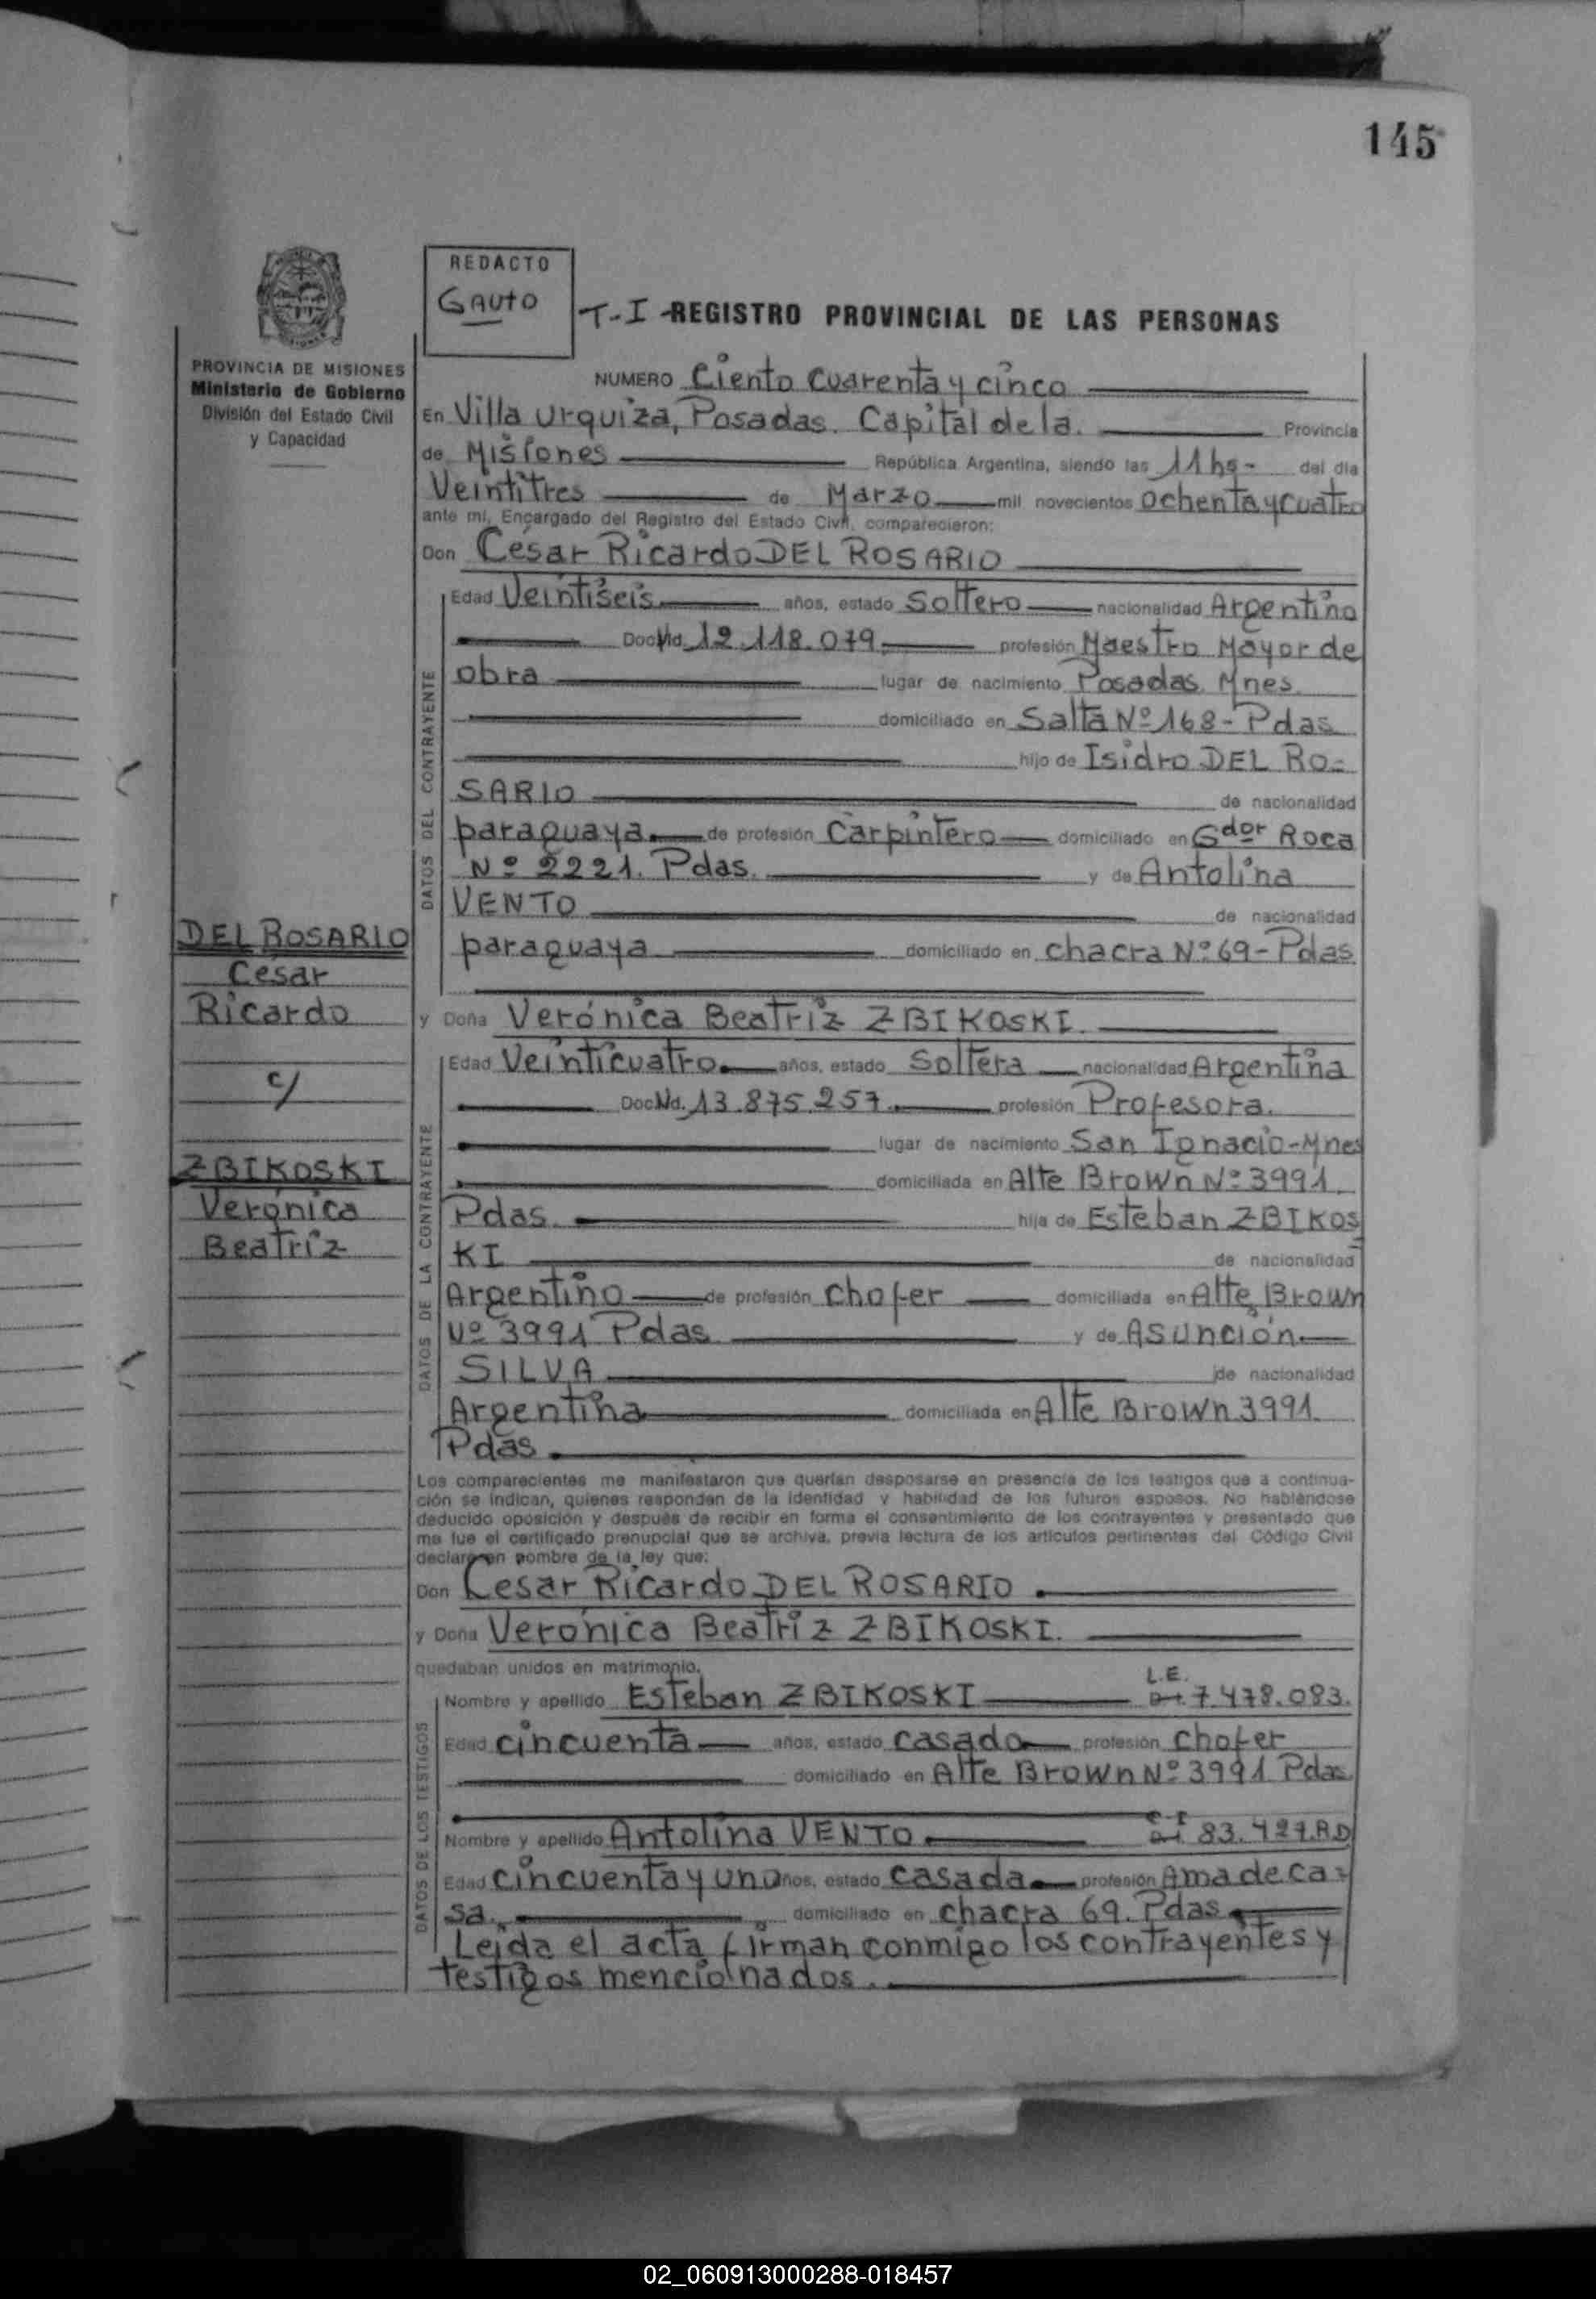 145
REDACTO
GAUTO
T-I - REGISTRO PROVINCIAL DE LAS PERSONAS
PROVINCIA DE MISIONES
Ministerio de Gobierno
División del Estado Civil
y Capacidad
NUMERO Ciento Cuarenta y cinco
En Villa Urquiza, Posadas. Capital de la. Provincia
de Misiones República Argentina, siendo las 11 hs- del día
Veintitres de Marzo mil novecientos ochenta y cuatro
ante mi, Encargado del Registro del Estado Civil, comparecieron:
Don César Ricardo DEL ROSARIO
Edad Veintiseis años, estado Soltero nacionalidad Argentino
Doc. Nd. 12.118.079 profesión Maestro Mayor de
obra lugar de nacimiento Posadas. Mnes.
domiciliado en Salta Nº 168 - Pdas
hijo de Isidro DEL RO-
SARIO de nacionalidad
paraguaya de profesión Carpintero domiciliado en Gdor Roca
Nº 2221. Pdas. y de Antolina
VENTO de nacionalidad
paraguaya domiciliado en chacra Nº 69 - Pdas
DATOS DEL CONTRAYENTE
DEL ROSARIO
César
Ricardo
c/
ZBIKOSKI
Verónica
Beatriz
y Doña Verónica Beatriz ZBIKOSKI.
Edad Veinticuatro años, estado Soltera nacionalidad Argentina
Doc. Nd. 13.875.257 profesión Profesora.
lugar de nacimiento San Ignacio - Mnes
domiciliada en Alte Brown Nº 3991.
Pdas. hija de Esteban ZBIKOS
KI de nacionalidad
Argentino de profesión chofer domiciliada en Alte Brown
Nº 3991 Pdas y de Asunción
SILVA de nacionalidad
Argentina domiciliada en Alte Brown 3991
Pdas.
DATOS DE LA CONTRAYENTE
Los comparecientes me manifestaron que querían desposarse en presencia de los testigos que a continua-
ción se indican, quienes responden de la identidad y habilidad de los futuros esposos. No habiéndose
deducido oposición y después de recibir en forma el consentimiento de los contrayentes y presentado que
me fue el certificado prenupcial que se archiva, previa lectura de los artículos pertinentes del Código Civil
declaré en nombre de la ley que:
Don Cesar Ricardo DEL ROSARIO
y Doña Verónica Beatriz ZBIKOSKI.
quedaban unidos en matrimonio.
L.E.
Nombre y apellido Esteban ZBIKOSKI 7.478.083.
Edad cincuenta años, estado casado profesión chofer
domiciliado en Alte Brown Nº 3991 Pdas
C-I
Nombre y apellido Antolina VENTO 83.427.RD
Edad cincuenta y un años, estado casada profesión Ama de ca-
sa. domiciliado en chacra 69. Pdas
DATOS DE LOS TESTIGOS
Leida el acta firman conmigo los contrayentes y
testigos mencionados.
02_060913000288-018457